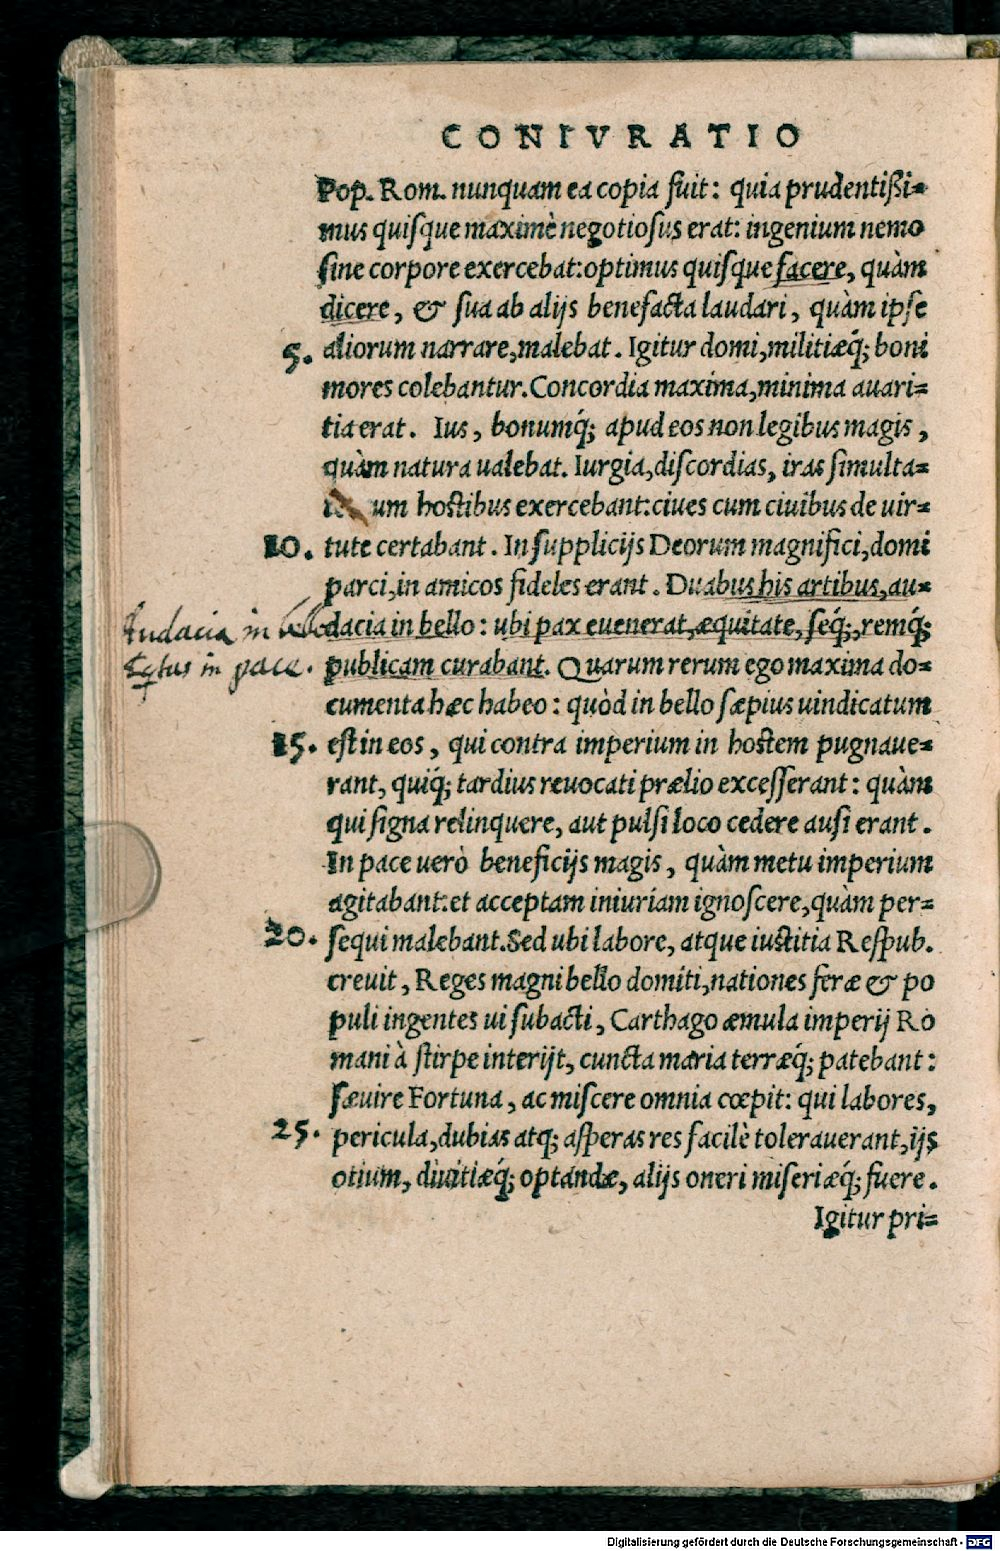 CONIVRATIO
Pop. Rom. nunquam ea copia fuit: quia prudentißi=
mus quiſque maximè negotioſus erat: ingenium nemo
ſine corpore exercebat: optimus quiſque facere, quàm
dicere, & ſua ab alijs benefacta laudari, quàm ipſe
5. aliorum narrare, malebat. Igitur domi, militiæq́; boni
mores colebantur. Concordia maxima, minima auari=
tia erat. Ius, bonumq́; apud eos non legibus magis,
quàm natura ualebat. Iurgia, diſcordias, iras ſimulta=
um hoſtibus exercebant: ciues cum ciuibus de uir=
10. tute certabant. In ſupplicijs Deorum magnifici, domi
parci, in amicos fideles erant. Duabus his artibus, au=
dacia in bello: ubi pax euenerat, æquitate, ſeq́;, remq́;
publicam curabant. Quarum rerum ego maxima do=
cumenta hæc habeo: quòd in bello ſæpius uindicatum
15. eſt in eos, qui contra imperium in hoſtem pugnaue=
rant, quiq́; tardius reuocati prælio exceſſerant: quàm
qui ſigna relinquere, aut pulſi loco cedere auſi erant.
In pace uerò beneficijs magis, quàm metu imperium
agitabant: et acceptam iniuriam ignoſcere, quàm per=
20. ſequi malebant. Sed ubi labore, atque iuſtitia Reſpub.
creuit, Reges magni bello domiti, nationes feræ & po
puli ingentes ui ſubacti, Carthago æmula imperij Ro
mani à ſtirpe interijt, cuncta maria terræq́; patebant:
ſæuire Fortuna, ac miſcere omnia cœpit: qui labores,
25. pericula, dubias atq; aſperas res facilè tolerauerant, ijs
otium, diuitiæq́; optandæ, alijs oneri miſeriæq́; fuere.
Igitur pri=
Audacia in bello
in pace.
Digitalisierung gefördert durch die Deutsche Forschungsgemeinschaft - DFG